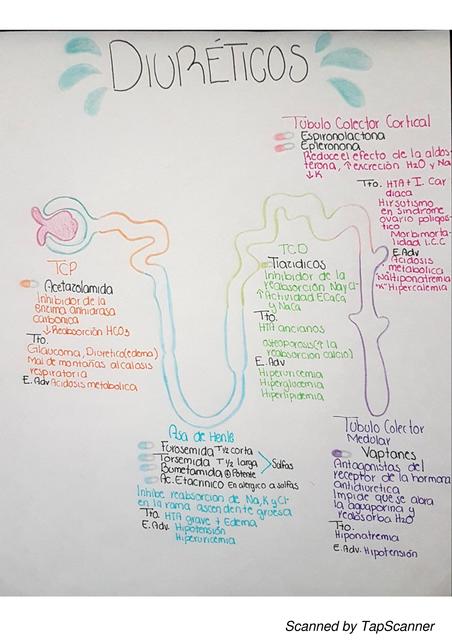 DIURÉTICOS
Túbulo Colector Cortical
Espironolactona
Eplerenona
Reduce el efecto de la aldos-
terona, ↑excreción H2O y Na
↓K
Tto. HTA + I. Car
diaca
Hirsutismo
en síndrome
ovario poliqís-
tico
Morbimorta-
lidad I.C.C
E. Adv
Acidosis
metabólica
Hiponatremia
"K" Hipercalemia
TCP
Acetazolamida
Inhibidor de la
enzima anhidrasa
carbónica
↓ Reabsorción HCO3
Tto.
Glaucoma, Diurético(edema)
Mal de montañas alcalosis
respiratoria
E. Adv Acidosis metabólica
TCD
Tiazidicos
Inhibidor de la
reabsorción Na y Cl-
↑Actividad ECaC2
y NaCa
Tto.
HTA ancianos
osteoporosis(↑ la
reabsorción calcio)
E. Adv
Hiperuricemia
Hiperglucemia
Hiperlipidemia
Asa de Henle
Furosemida T 1/2 corta
Torsemida T 1/2 larga
Bumetamida ⊕ Potente
Sulfas
Ac. Etacrínico En alérgico a sulfas
Inhibe reabsorción de Na, K y Cl-
en la rama ascendente gruesa
Tto. HTA grave + Edema
E. Adv. Hipotensión
Hiperuricemia
Túbulo Colector
Medular
Vaptones
Antagonistas del
receptor de la hormona
antidiurética
Impide que se abra
la aquaporina y
reabsorba H2O
Tto.
Hiponatremia
E. Adv. Hipotensión
Scanned by TapScanner